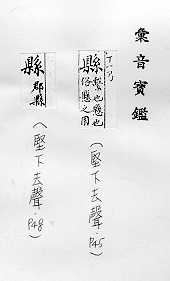 彙音寶鑑
縣 繫也懸也
仔懸之用
(堅下去聲·P45)
縣 郡縣
(堅下去聲·P48)